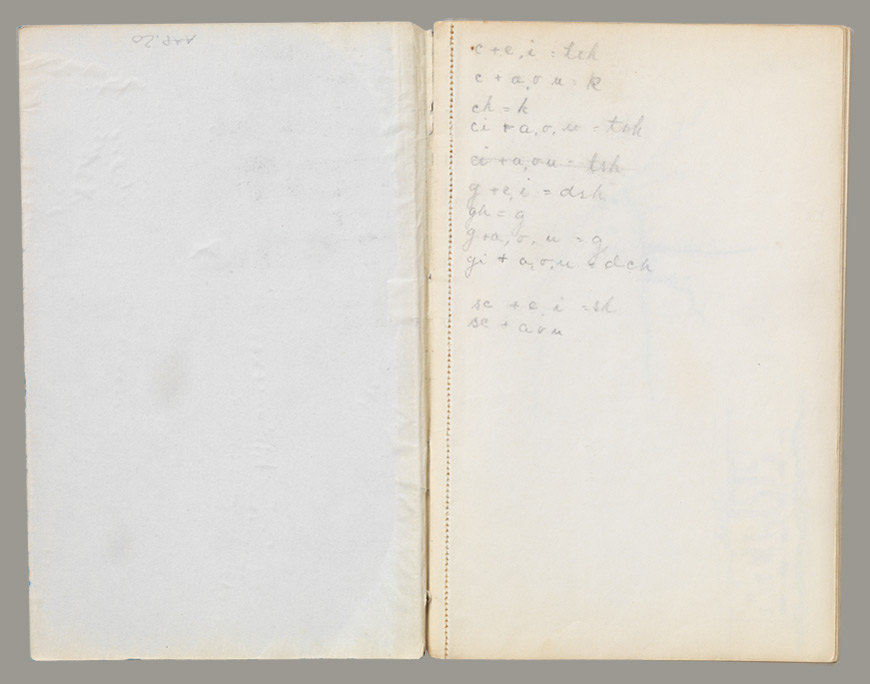 c + e, i = tch
c + a, o u = k
ch = k
ci + a, o, u = tsh
ci + a, o u = tsh
g + e, i = dsh
gh = g
g + a, o, u = g
gi + a, o, u = dch
sc + e, i = sh
sc + a o u